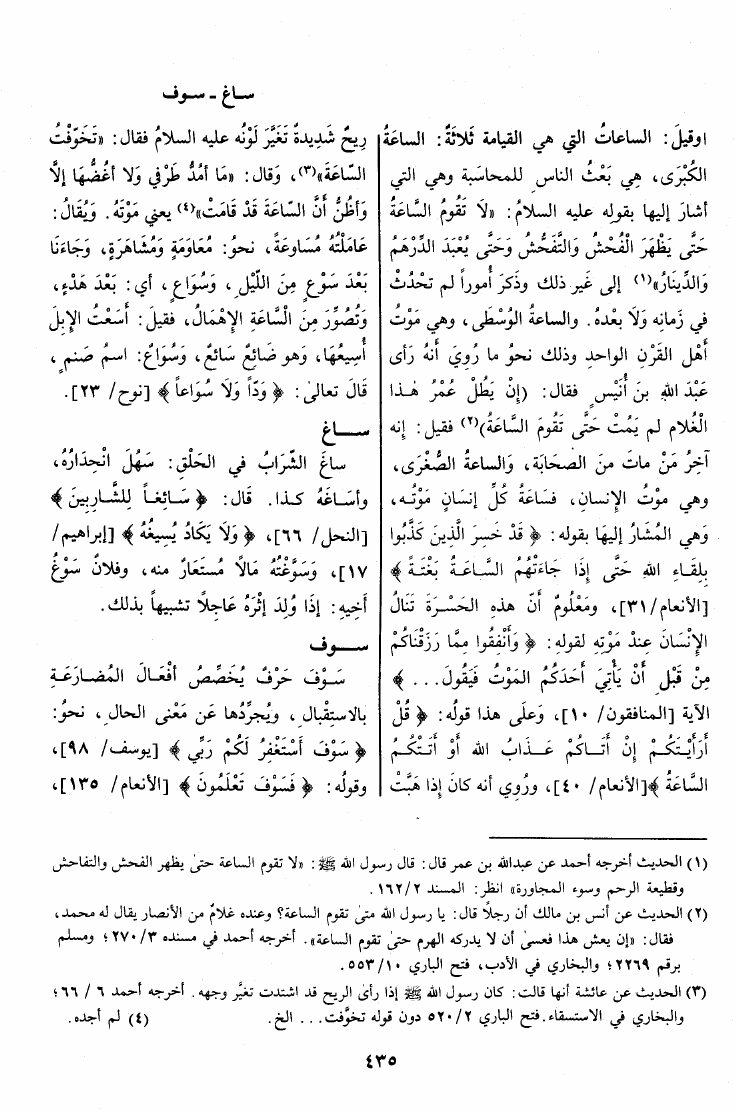 ساغ - سوف
اوقيلَ: الساعاتُ التي هي القيامة ثَلاثَةٌ: الساعَةُ
الكُبْرَى، هِي بَعْثُ الناسِ للمحاسَبة وهي التي
أشارَ إليها بقوله عليه السلامُ: «لَا تَقُومُ السَّاعَةُ
حَتَّى يَظْهَرَ الْفُحْشُ وَالتَّفَحُّشُ وَحَتَّى يُعْبَدَ الدِّرْهَمُ
وَالدِّينَارُ»(١) إلى غير ذلك وذكَرَ أُموراً لم تَحْدُثْ
في زَمانِه وَلَا بعْدهُ. والساعةُ الوُسْطَى، وهي مَوْتُ
أهْل القَرْنِ الواحِدِ وذلك نحوُ ما رُوِيَ أنهُ رأى
عَبْدَ اللهِ بنَ أُنَيْسٍ فقال: (إنْ يَطُلْ عُمْرُ هٰذا
الْغُلامِ لم يَمُتْ حَتَّى تَقُومَ السَّاعَةُ)(٢) فقيل: إنه
آخِرُ مَنْ ماتَ منَ الصحَابَة، وَالساعةُ الصُّغْرَى،
وهي موْتُ الإنسانِ، فسَاعَةُ كُلِّ إنسَانٍ مَوْتُه،
وَهي المُشَارُ إليهَا بقوله: ﴿ قَدْ خَسِرَ الَّذِينَ كَذَّبُوا
بِلِقَاءِ اللهِ حَتَّى إذَا جَاءَتْهُمُ السَّاعَةُ بَغْتَةً ﴾
[الأنعام/ ٣١]، ومَعْلُومٌ أنّ هذهِ الحَسْرَةَ تَنَالُ
الإنْسَانَ عِنْدَ مَوْتِهِ لقولِه: ﴿ وَأَنْفِقُوا مِمَّا رَزَقْنَاكُمْ
مِنْ قَبْلِ أَنْ يَأْتِيَ أَحَدَكُمُ المَوْتُ فَيَقُولَ... ﴾
الآية [المنافقون/ ١٠]، وَعَلى هذا قولُه: ﴿ قُلْ
أَرَأَيْتَكُمْ إنْ أَتَاكُمْ عَذَابُ اللهِ أوْ أَتَتْكُمُ
السَّاعَةُ ﴾[الأنعام/ ٤٠]، ورُوِي أنه كانَ إذَا هَبَّتْ
رِيحٌ شَدِيدةٌ تَغَيَّرَ لَوْنُه عليه السلامُ فقال: «تَخَوَّفْتُ
السَّاعَةَ»(٣)، وَقال: «مَا أَمُدُّ طَرْفي وَلا أغُضُّهَا إلَّا
وَأظُنُّ أنَّ السَّاعَةَ قَدْ قَامَتْ»(٤) يعني مَوْتَه. وَيُقَالُ:
عَامَلْتُهُ مُسَاوعَةً، نحوُ: مُعَاوَمَةٍ وَمُشَاهَرَةٍ، وَجَاءَنَا
بَعْدَ سَوْعٍ مِنَ اللّيْلِ، وَسُوَاعٍ، أي: بَعْدَ هَدْءٍ،
وَتُصُوِّرَ مِنَ الْسَّاعَةِ الإهْمَالُ، فقيلَ: أسَعْتُ الإبِلَ
أُسِيعُهَا، وَهو ضَائِعٌ سَائِعٌ، وَسُوَاعٌ: اسمُ صَنمٍ،
قَالَ تعالىٰ: ﴿ وَدّاً وَلَا سُوَاعاً ﴾ [نوح/ ٢٣].
ساغ
ساغَ الشَّرَابُ في الحَلْقِ: سَهُلَ انْحِدَارُهُ،
وأسَاغَهُ كذا. قال: ﴿ سَائِغاً لِلشَّارِبِينَ ﴾
[النحل/ ٦٦]، ﴿ وَلَا يَكَادُ يُسِيغُهُ ﴾ [إبراهيم/
١٧]، وَسَوَّغْتُه مَالًا مُستَعَارٌ منه، وفلانٌ سَوْغُ
أخِيهِ: إذَا وُلِدَ إثْرَهُ عَاجِلًا تشبيهاً بذلك.
سوف
سَوْفَ حَرْفٌ يُخَصِّصُ أفْعَالَ المُضَارَعَةِ
بالاستِقْبالِ، ويُجَرِّدُها عَن مَعْنى الحالِ، نحوُ:
﴿ سَوْفَ أَسْتَغْفِرُ لَكُمْ رَبِّي ﴾ [يوسف/ ٩٨]،
وقولُه: ﴿ فَسَوْفَ تَعْلَمُونَ ﴾ [الأنعام/ ١٣٥]،
(١) الحديث أخرجه أحمد عن عبدالله بن عمر قال: قال رسول الله ﷺ: «لا تقوم الساعة حتىٰ يظهر الفحش والتفاحش
وقطيعة الرحم وسوء المجاورة» انظر: المسند ١٦٢/٢.
(٢) الحديث عن أنس بن مالك أن رجلًا قال: يا رسول الله متىٰ تقوم الساعة؟ وعنده غلامٌ من الأنصار يقال له محمد،
فقال: «إن يعش هذا فعسىٰ أن لا يدركه الهرم حتىٰ تقوم الساعة». أخرجه أحمد في مسنده ٢٧٠/٣؛ ومسلم
برقم ٢٢٦٩؛ والبخاري في الأدب، فتح الباري ٥٥٣/١٠.
(٣) الحديث عن عائشة أنها قالت: كان رسول الله ﷺ إذا رأىٰ الريح قد اشتدت تغيَّر وجهه. أخرجه أحمد ٦ / ٦٦؛
والبخاري في الاستسقاء. فتح الباري ٥٢٠/٢ دون قوله تخوَّفت... الخ. (٤) لم أجده.
٤٣٥